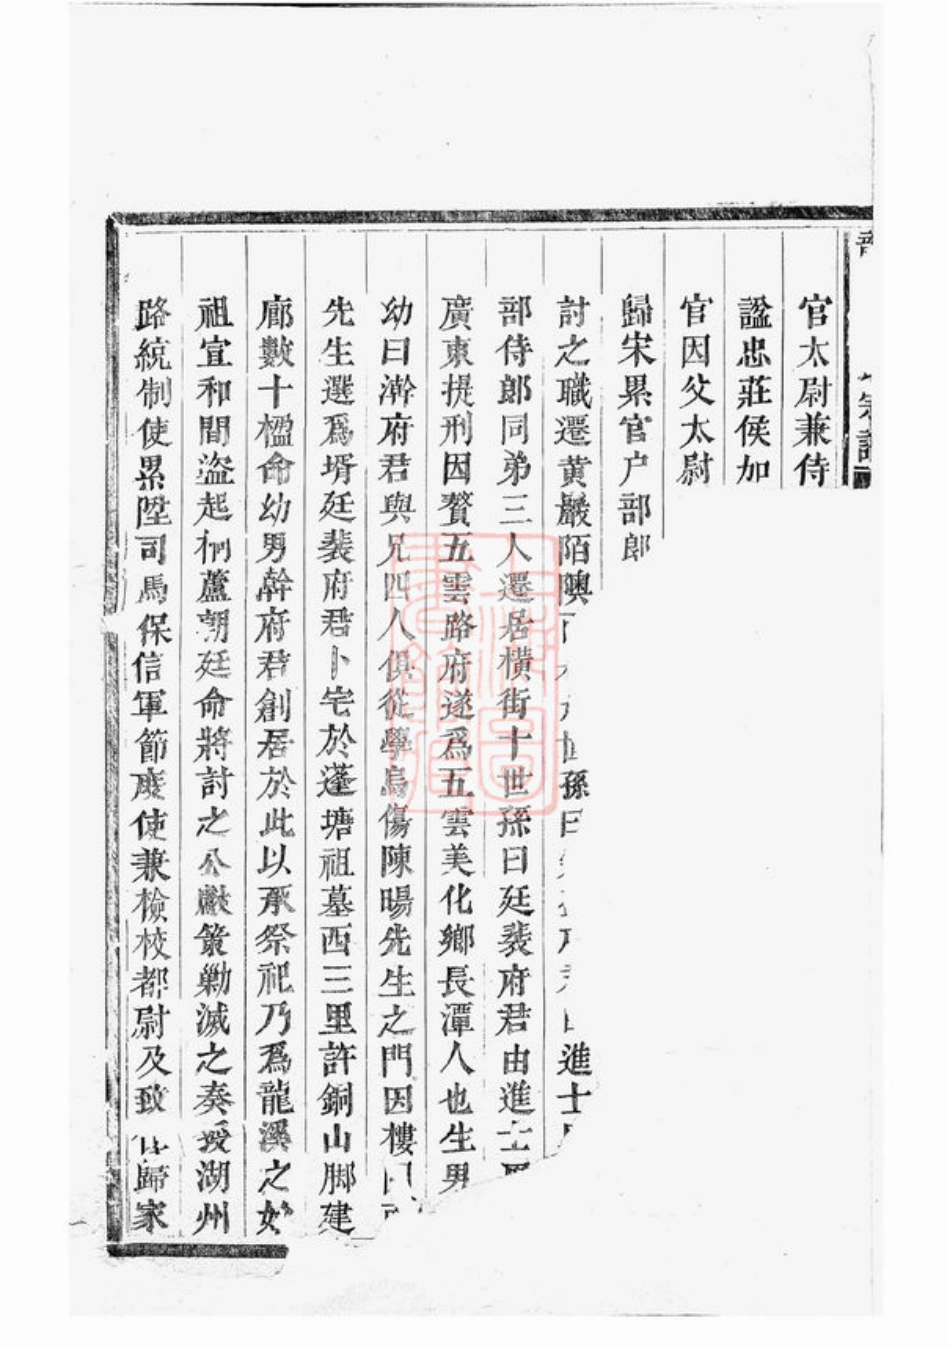 宗譜
官太尉兼侍
諡忠莊侯加
官因父太尉
歸宋累官户部郎
討之職遷黃巖陌隩孫曰進士
部侍郎同弟三人遷居橫街十世孫曰廷裴府君由進士
廣東提刑因贅五雲路府遂為五雲美化鄉長潭人也生男
幼曰澣府君與兄四人俱從學烏傷陳暘先生之門因樓
先生選爲壻廷裴府君卜宅於蓬塘祖墓西三里許銅山脚建
廊數十楹命幼男斡府君創居於此以承祭祀乃爲龍溪之始
祖宣和間盜起桐蘆朝廷命將討之公獻策勦滅之奏授湖州
路統制使累陞司馬保信軍節度使兼檢校都尉及致仕歸家